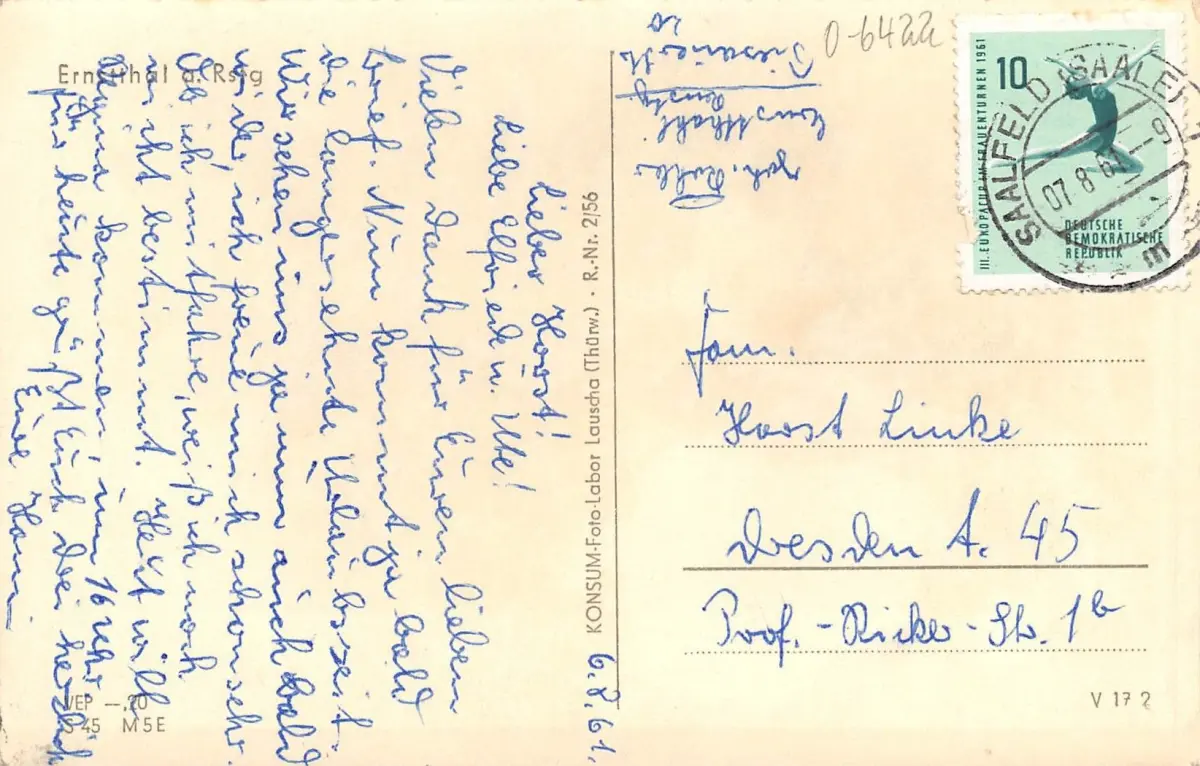 Ernstthal a. Rstg
6.8.61.
Lieber Horst!
Liebe Elfriede u. Ute!
Vielen Dank für Euren lieben
Brief. Nun kommt ja bald
die langersehnte Urlaubszeit.
Wir sehen uns ja nun auch bald
wieder, ich freue mich schon sehr.
Ob ich mitfahre, weiß ich noch
nicht bestimmt. Jetzt will
Regina kommen um 16 Uhr
Für heute grüßt Euch Drei herzlich
Eure Hanni
VEP —,20
S 45 M 5 E
KONSUM-Foto-Labor Lauscha (Thürw.) · R.-Nr. 2/56
Ernstthal
Renstg.
20
0-6422
10
III. EUROPACUP IM FRAUENTURNEN 1961
DEUTSCHE
DEMOKRATISCHE
REPUBLIK
SAALFELD (SAALE)
07.8.61 - 9
m
Fam.
Horst Linke
Dresden A. 45
Prof.-Ricker-Str. 1b
V 17 2